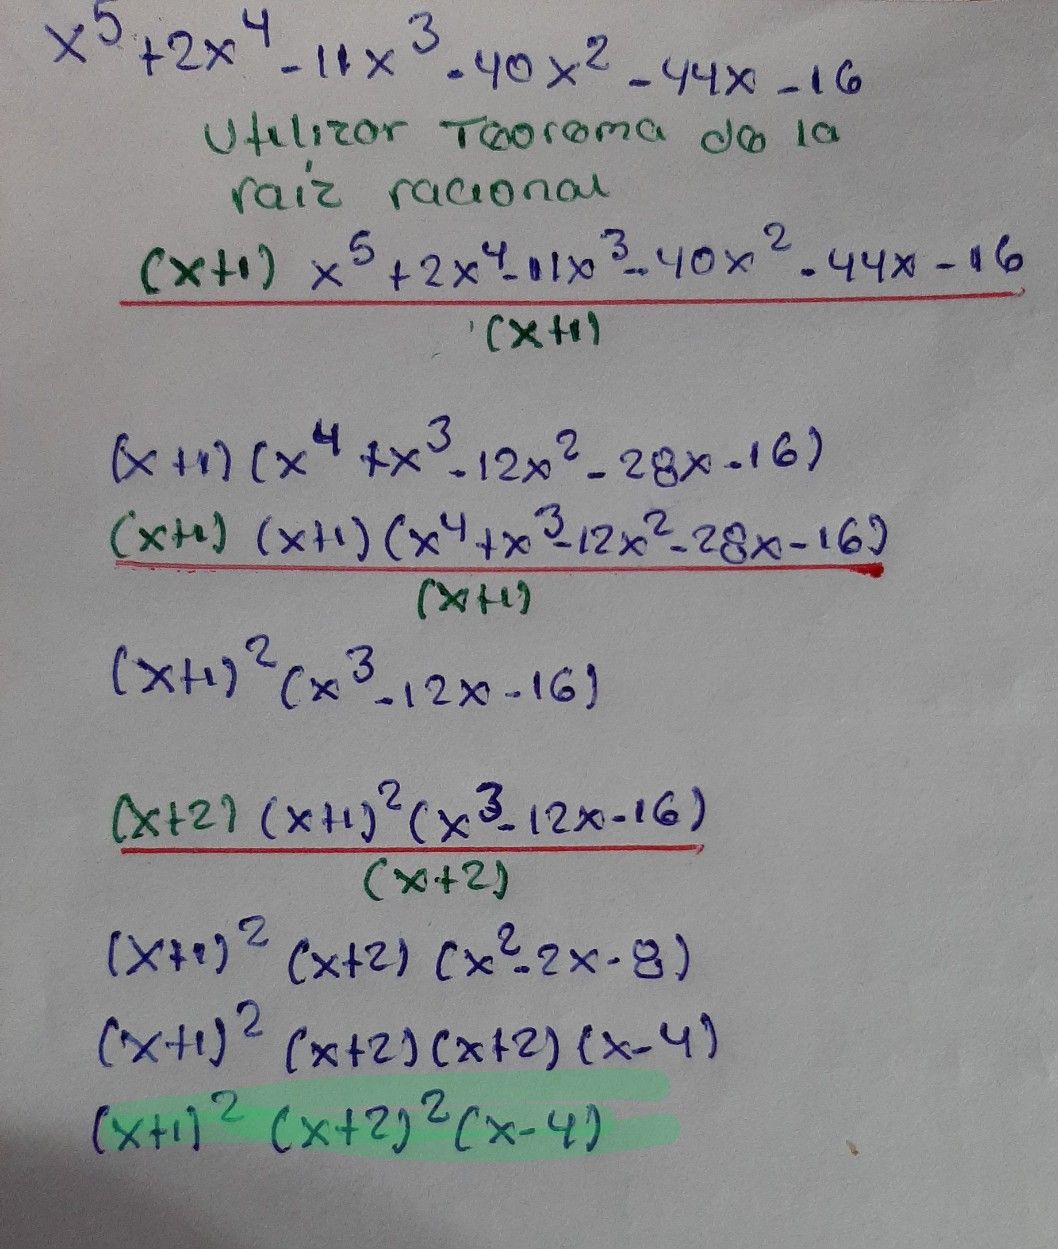 x⁵+2x⁴-11x³-40x²-44x-16
Utilizar Teorema de la
raíz racional
(x+1) x⁵+2x⁴-11x³-40x²-44x-16
(x+1)
(x+1)(x⁴+x³-12x²-28x-16)
(x+1)(x+1)(x⁴+x³-12x²-28x-16)
(x+1)
(x+1)²(x³-12x-16)
(x+2)(x+1)²(x³-12x-16)
(x+2)
(x+1)²(x+2)(x²-2x-8)
(x+1)²(x+2)(x+2)(x-4)
(x+1)²(x+2)²(x-4)